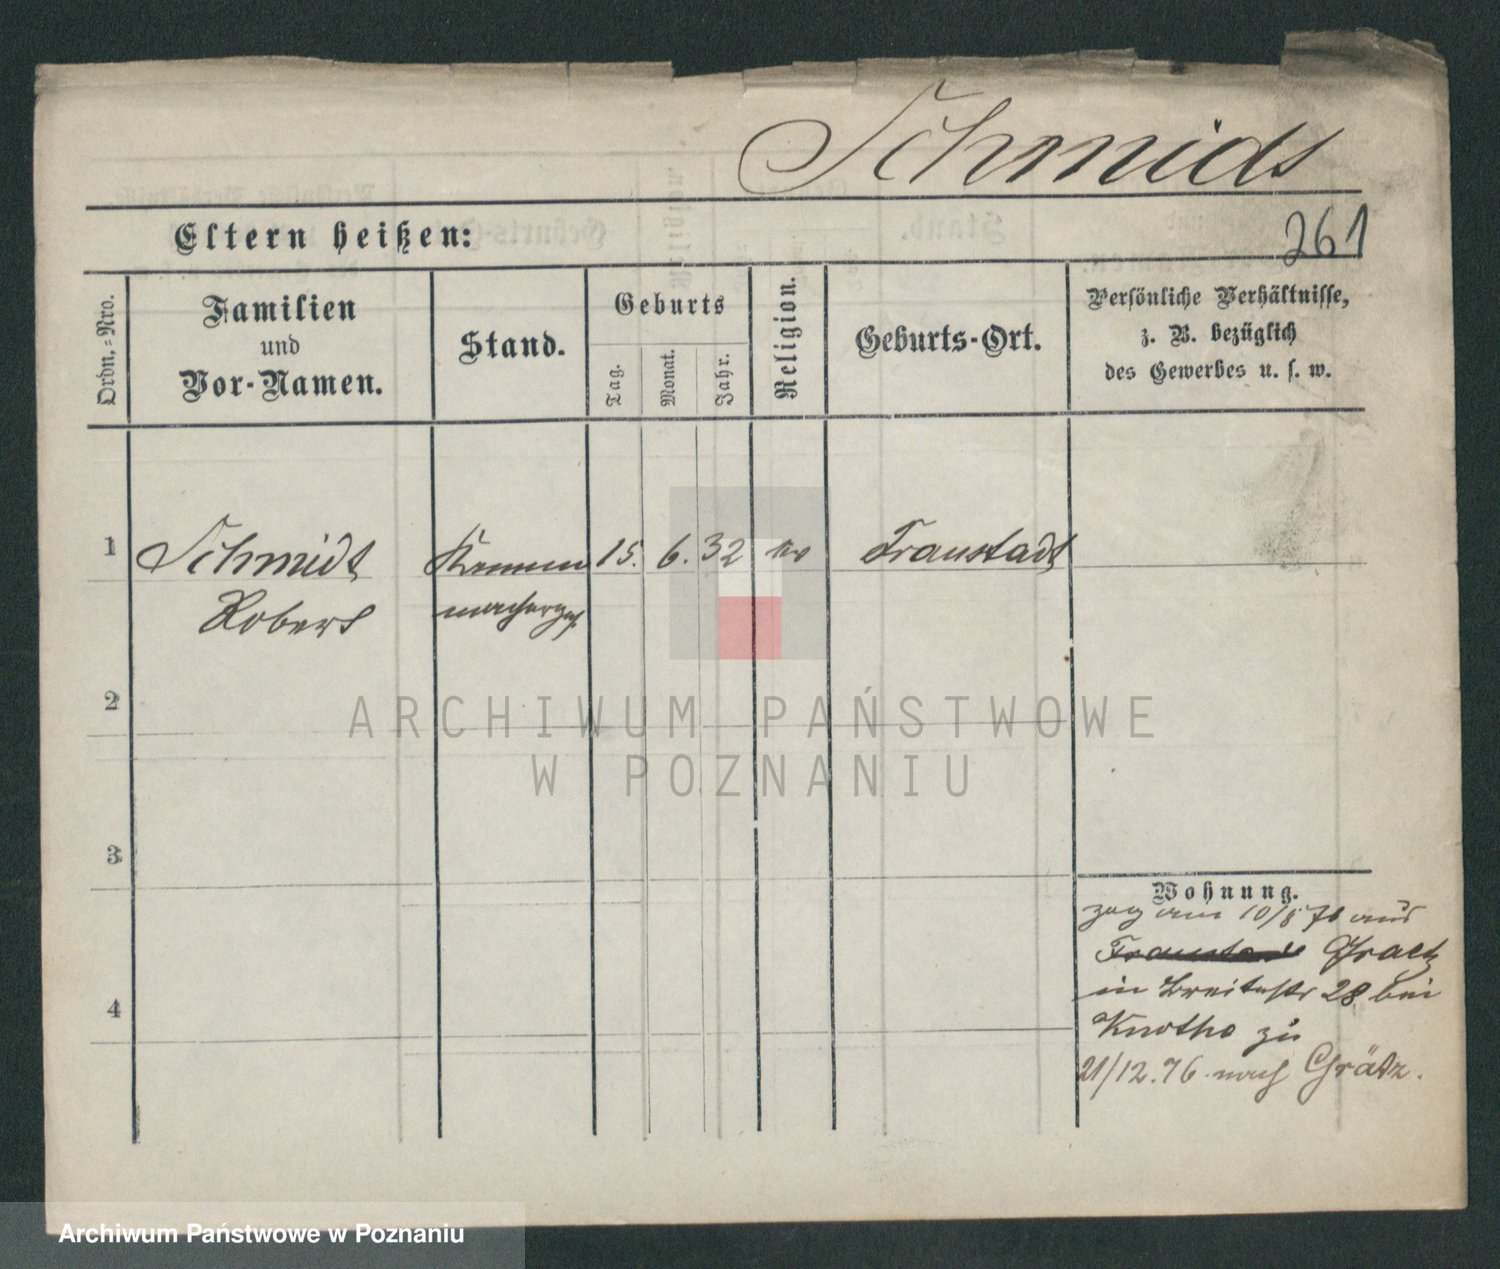 Schmidt
Eltern heißen:
261
Ordn.-Nro.
Familien
und
Vor-Namen.
Stand.
Geburts
Tag.
Monat.
Jahr.
Religion.
Geburts-Ort.
Persönliche Verhältnisse,
z. B. bezüglich
des Gewerbes u. s. w.
1
Schmidt
Robert
Kamm
machergs.
15.
6.
32
ev
Fraustadt
2
3
4
Wohnung.
zog am 10/8 76 aus
Fraustadt Graetz
in Breitestr 28 bei
Knothe zu
21/12.76 nach Grätz.
ARCHIWUM PAŃSTWOWE
W POZNANIU
Archiwum Państwowe w Poznaniu